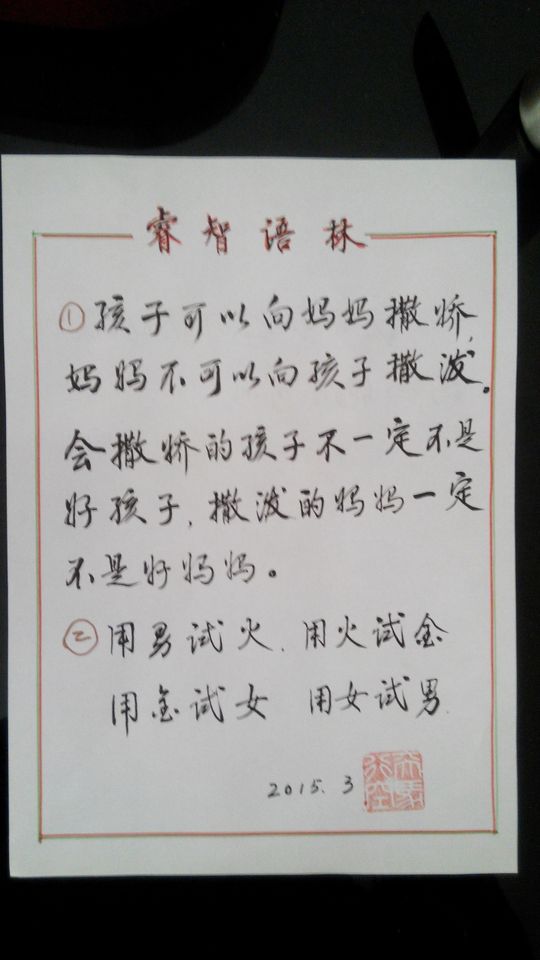 睿智语林
①孩子可以向妈妈撒娇,
妈妈不可以向孩子撒泼。
会撒娇的孩子不一定不是
好孩子,撒泼的妈妈一定
不是好妈妈。
②用男试火.用火试金
用金试女 用女试男.
2015.3
天马
行空